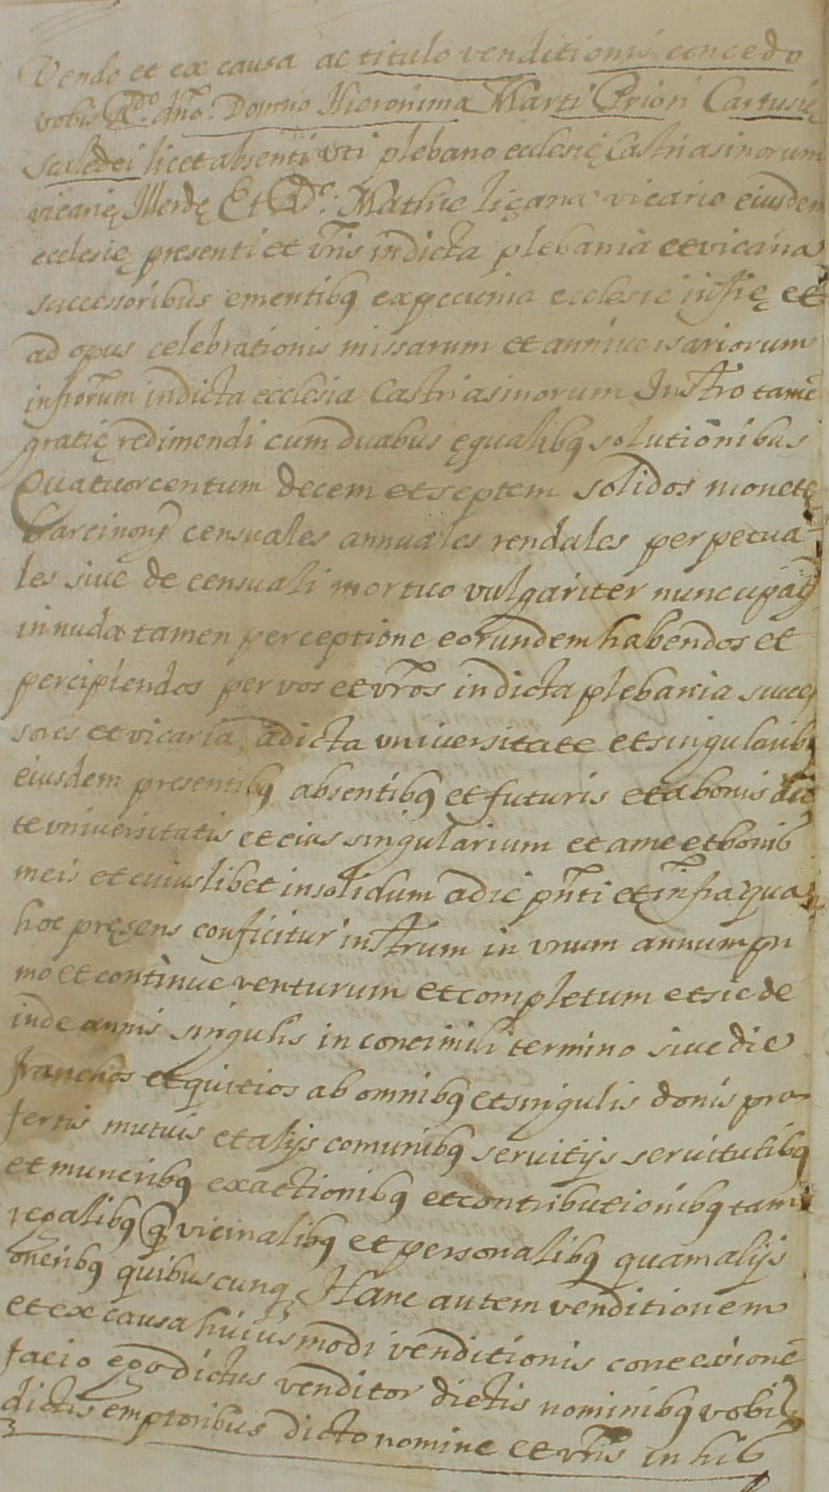 Vendo et ex causa ac titulo venditionis concedo
vobis R.do dño. Domno Hieronima Marti Priori Cartusię
scaledei licet absenti uti plebano ecclesię Castriasinorum
vicarię Illerdę Et R.do: Mathie liçana vicario eiusdem
ecclesię presenti et vr̃is in dicta plebania et vicaria
successoribus ementibq ex peccunia ecclesie infr̃ę et
ad opus celebrationis missarum et anniuersariorum
infr̃orum in dicta ecclesia Castriasinorum Instr̃o tamẽ
gratię redimendi cum duabus ęqualibq solutionibus
Quatuorcentum decem et septem solidos monetę
Barcinonę censuales annuales rendales perpetua-
les siue de censuali mortuo vulgariter nuncupatos
in nuda tamen perceptione eorundem habendos et
percipiendos per vos et vr̃os in dicta plebania succes
sores et vicaria, a dicta vniuersitate et singularibq
eiusdem presentibq absentibq et futuris et a bonis dic
te vniuersitatis et eius singularium et a me et bonib
meis et cuiuslibet insolidum a die pñti et infra qua
hoc pręsens conficitur instr̃um in vnum annum pri
mo et continue venturum et completum et sic de
inde annis singulis in concimili termino siue die
franchos et quitios ab omnibq et singulis donis pro-
fertis mutuis et alijs comunibq seruitijs seruitutibq
et muneribq exactionibq et contributionibq tam
regalibq q̃ vicinalibq et personalibq quam alijs
oneribq quibuscunq, Hanc autem venditionem
et ex causa huiusmodi venditionis concessionẽ
facio ego dictus venditor dictis nominibq vobis
dictis emptoribus dicto nomine et vr̃is in hib